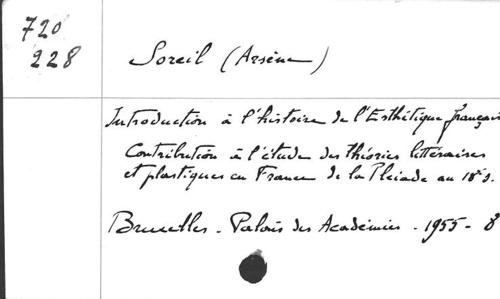 720
228
Soreil (Arsène)
Introduction à l'histoire de l'Esthétique français
Contribution à l'étude des théories littéraires
et plastiques en France de la Pléiade au 18e s.
Bruxelles - Palais des Académies - 1955 - 8